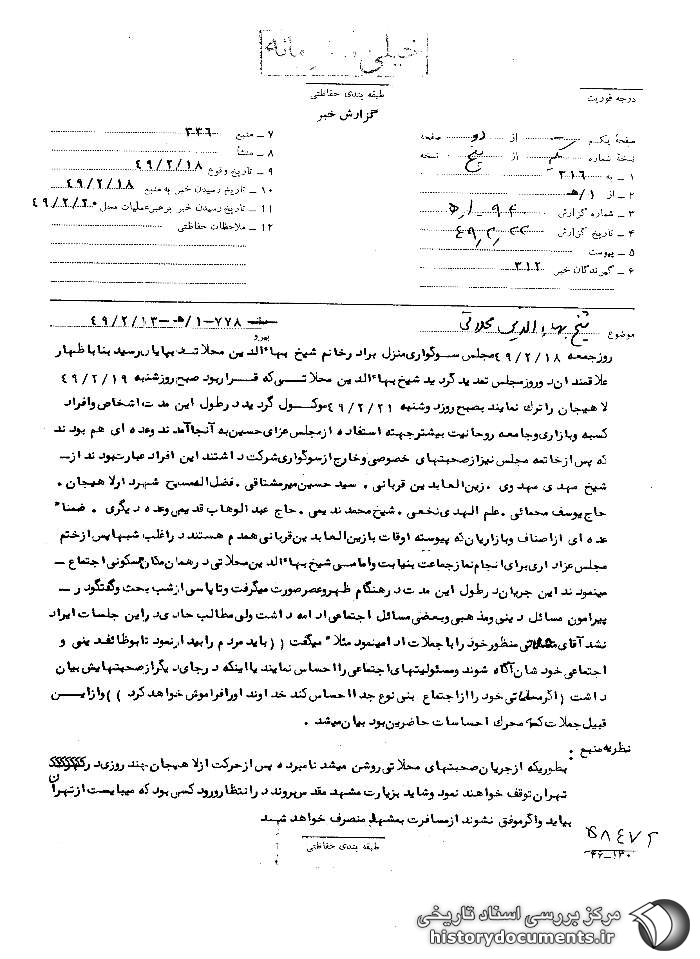 خیلی محرمانه
طبقه بندی حفاظتی
گزارش خبر
درجه فوریت
صفحهٔ یکم از دو صفحه
نسخهٔ شماره یکم از پنج نسخه
۱ ـ به ۳۱۶
۲ ـ از ۱/هـ
۳ ـ شماره گزارش
۴ ـ تاریخ گزارش
۵ ـ پیوست
۶ ـ گیرندگان خبر ۳۱۲
۷ ـ منبع ۳۳۶
۸ ـ منشأ
۹ ـ تاریخ وقوع ۴۹/۲/۱۸
۱۰ ـ تاریخ رسیدن خبر به منبع ۴۹/۲/۱۸
۱۱ ـ تاریخ رسیدن خبر برهبر عملیات محل ۴۹/۲/۲۰
۱۲ ـ ملاحظات حفاظتی
موضوع شیخ بهاءالدین محلاتی
پیرو ۷۷۸-۱/هـ-۴۹/۲/۱۳
روز جمعه ۴۹/۲/۱۸ مجلس سوگواری منزل برادر خانم شیخ بهاءالدین محلاتی بپایان رسید بنا باظهار
علاقمندان دو روز مجلس تمدید گردید شیخ بهاءالدین محلاتی که قرار بود صبح روز شنبه ۴۹/۲/۱۹
لاهیجان را ترک نمایند بصبح روز دوشنبه ۴۹/۲/۲۱ موکول گردید در طول این مدت اشخاص و افراد
کسبه و بازاری و جامعه روحانیت بیشتر جهته استفاده از مجلس عزای حسین به آنجا آمدند و عده ای هم بودند
که پس از خاتمه مجلس نیز از صحبتهای خصوصی و خارج از سوگواری شرکت داشتند این افراد عبارت بودند از ـ
شیخ مهدی مهدوی . زین العابدین قربانی . سید حسین میرمشتاقی . فضل المسیح شهردار لاهیجان .
حاج یوسف محمائی . علم الهدی نخعی . شیخ محمد ندیمی . حاج عبدالوهاب قدیمی و عده دیگری . ضمناً
عده ای از اصناف و بازاریان که پیوسته اوقات با زین العابدین قربانی همدم هستند در اغلب شبها پس از ختم
مجلس عزاداری برای انجام نماز جماعت بنیابت و امامی شیخ بهاءالدین محلاتی در همان مکان مسکونی اجتماع ـ
مینمودند این جریان در طول این مدت در هنگام ظهر و عصر صورت میگرفت و تا پاسی از شب بحث و گفتگو در ـ
پیرامون مسائل دینی و مذهبی و بعضی مسائل اجتماعی ادامه داشت ولی مطالب حادی در این جلسات ایراد
نشد آقای محلاتی منظور خود را با جملات ادا مینمود مثلاً میگفت (( باید مردم را بیدار نمود تا بوظائف دینی و
اجتماعی خودشان آگاه شوند و مسئولیتهای اجتماعی را احساس نمایند یا اینکه در جای دیگر از صحبتهایش بیان
داشت (اگر مسلمانی خود را از اجتماع بنی نوع جدا احساس کند خداوند او را فراموش خواهد کرد )) و از این
قبیل جملات که محرک احساسات حاضرین بود بیان میشد .
نظریه منبع :
بطوریکه از جریان صحبتهای محلاتی روشن میشد نامبرده پس از حرکت از لاهیجان چند روزی در
تهران توقف خواهند نمود و شاید بزیارت مشهد مقدس بروند در انتظار ورود کسی بود که میبایست از تهران
بیاید و اگر موفق نشوند از مسافرت بمشهد منصرف خواهد شد
طبقه بندی حفاظتی
۴۶-۱۳۰
مرکز بررسی اسناد تاریخی
historydocuments.ir